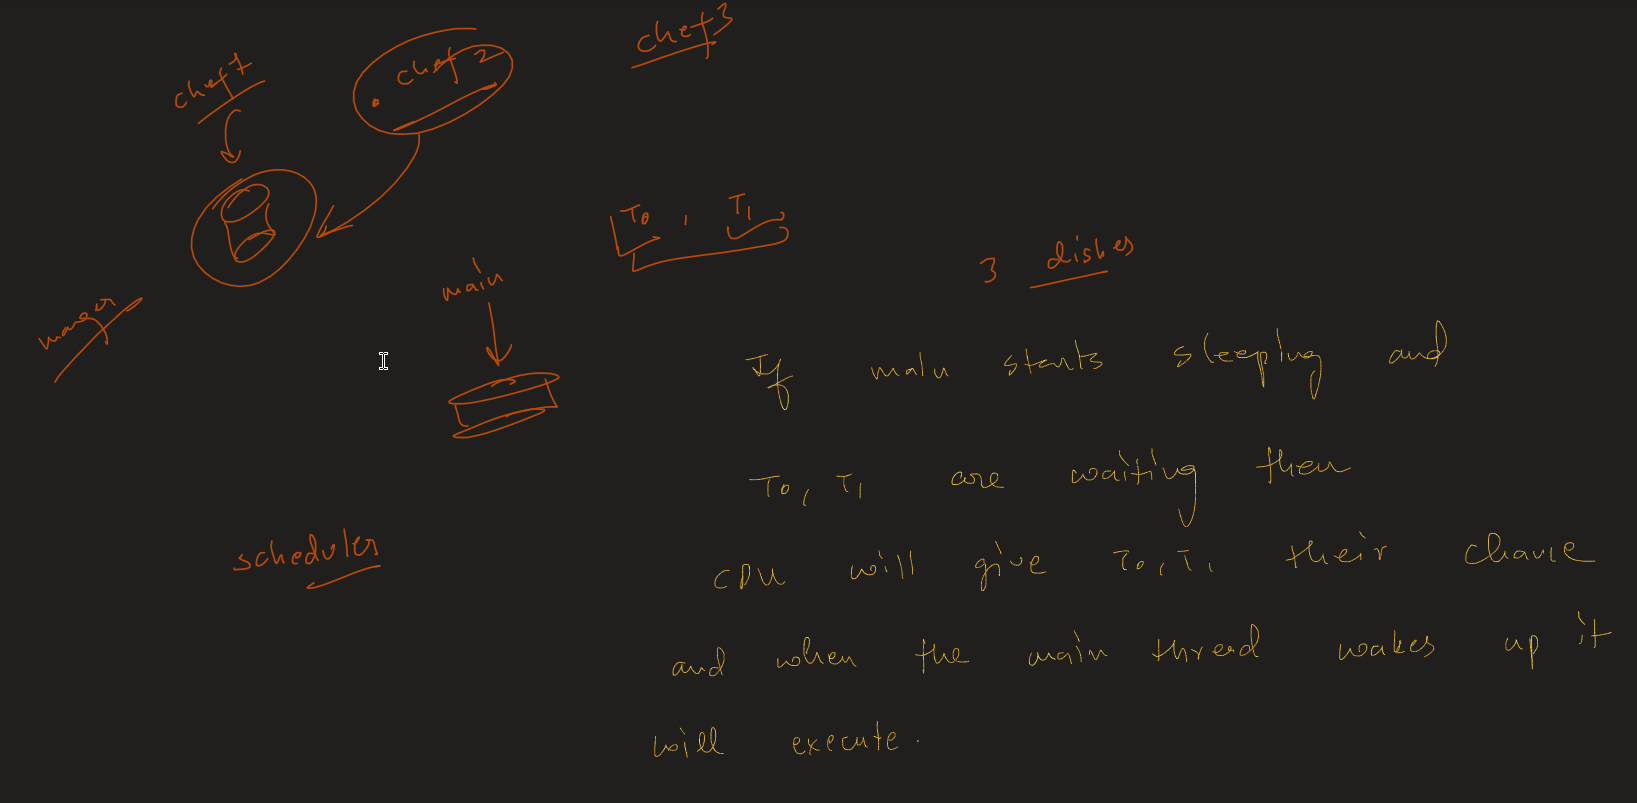 chef 1
chef 2
chef 3
T0 , T1
3 dishes
main
If main starts sleeping and
T0, T1 are waiting then
scheduler
CPU will give T0, T1 their chance
and when the main thread wakes up it
will execute.